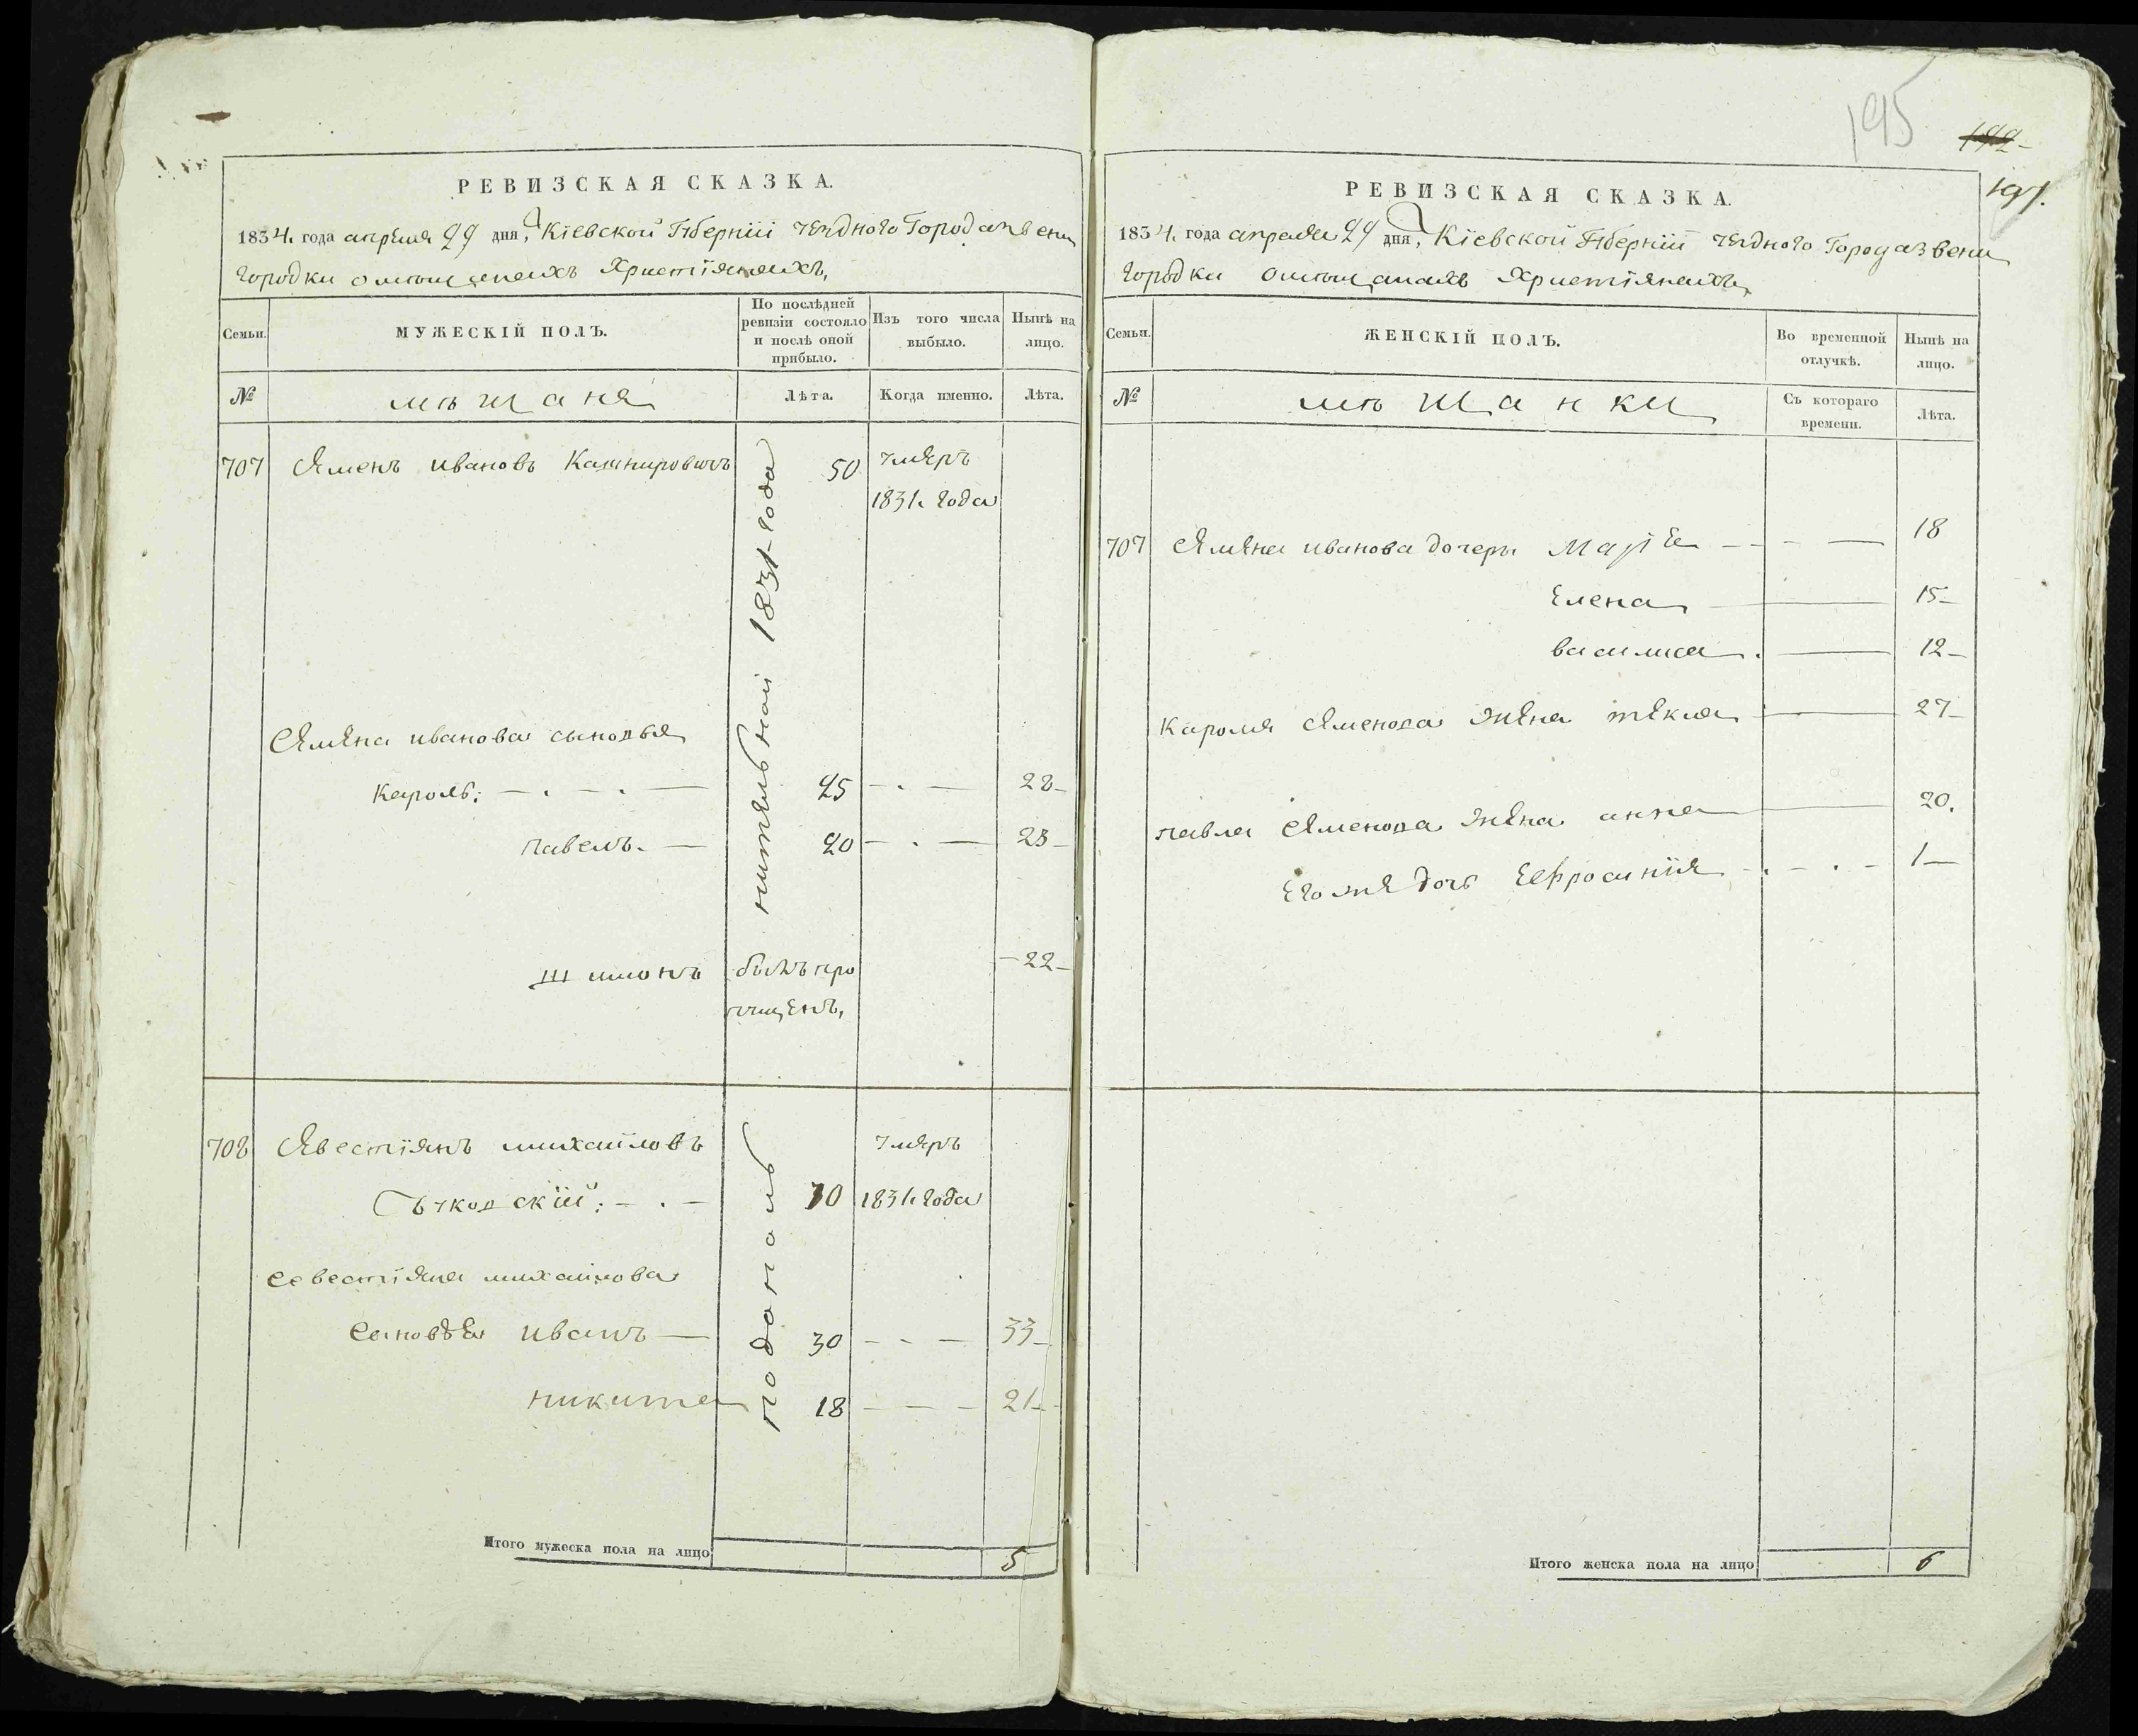 195
192
191.
РЕВИЗСКАЯ СКАЗКА.
1834. года апреля 29 дня, Кіевской Губерніи уездного Города звени
городки о мещанахъ Христіянахъ,
Семьи.
МУЖЕСКІЙ ПОЛЪ.
По послѣдней ревизіи состояло и послѣ оной прибыло.
Изъ того числа выбыло.
Нынѣ на лицо.
№
мещаня
Лѣта.
Когда именно.
Лѣта.
707 Яменъ ивановъ 50 умеръ
1831. года
нительной 1831 года
Семена иванова сыновья
Кароль: 25 28
павелъ. 20 23
шимонъ былъ про 22
пущенъ,
708 михайловъ умеръ
70 1831. года
подоналъ
севестіяна михайлова
сыновья иванъ 30 33
никита 18 21
Итого мужеска пола на лицо 5
РЕВИЗСКАЯ СКАЗКА.
1834. года апреля 29 дня, Кіевской Губерніи уездного Города звени
городки о мещанахъ Христіянахъ,
Семьи.
ЖЕНСКІЙ ПОЛЪ.
Во временной отлучкѣ.
Нынѣ на лицо.
№
мещанки
Съ котораго времени.
Лѣта.
707 Семена иванова дочери 18
Елена 15
василиса 12
Кароля Семенова жена текля 27
павла Семенова жена анна 20.
Его же дочь Ефросинія 1
Итого женска пола на лицо 6